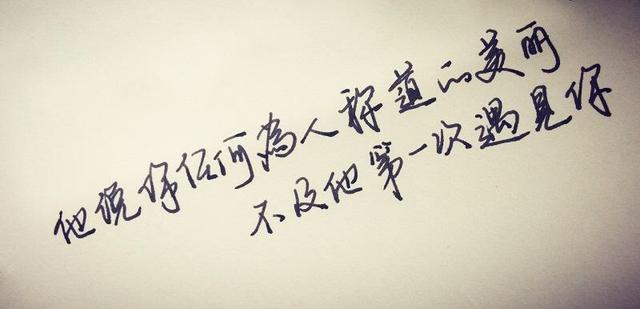 他说你任何為人称道的美丽
不及他第一次遇見你